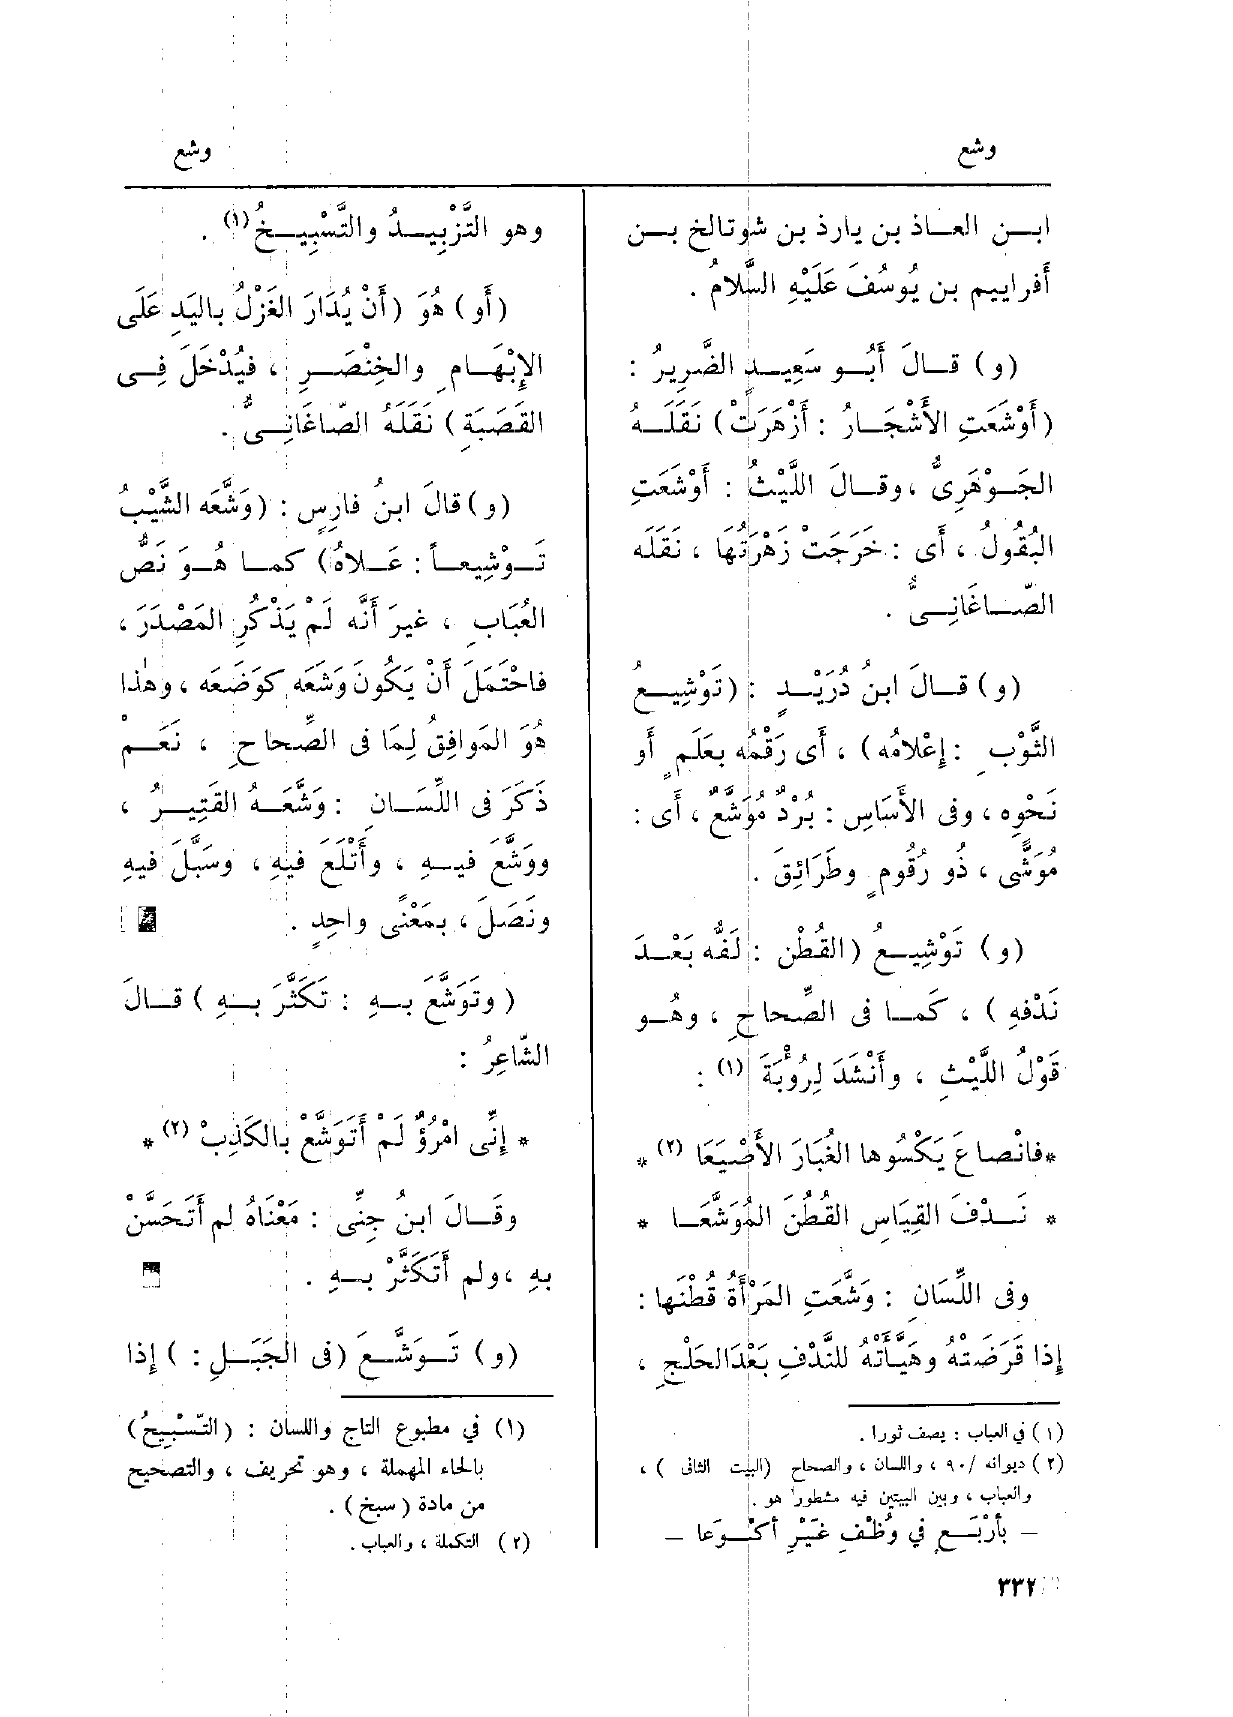 وشع
وشع
ابن العاذ بن يارذ بن شوتالخ بن
أفراييم بن يُوسُفَ عَلَيْهِ السَّلامُ .
(و) قالَ أَبُو سَعِيدٍ الضَّرِيرُ :
(أَوْشَعَتِ الأَشْجَارُ : أَزْهَرَتْ) نَقَلَهُ
الجَوْهَرِيُّ ، وقالَ اللَّيْثُ : أَوْشَعَتِ
البُقُولُ ، أَى : خَرَجَتْ زَهْرَتُهَا ، نَقَلَه
الصّاغَانِىُّ .
(و) قالَ ابنُ دُرَيْدٍ : (تَوْشِيعُ
الثَّوْبِ : إِعْلامُه) ، أَى رَقْمُه بعَلَمٍ أَو
نَحْوِه ، وفى الأَسَاسِ : بُرْدٌ مُوَشَّعٌ ، أَى :
مُوَشًّى ، ذُو رُقُومٍ وطَرَائِقَ .
(و) تَوْشِيعُ (القُطْنِ : لَفُّه بَعْدَ
نَدْفِهِ ) ، كَمَا فى الصِّحاحِ ، وهُو
قَوْلُ اللَّيْثِ ، وأَنْشَدَ لِرُوبَةَ (١) :
*فانْصاعَ يَكْسُوها الغُبَارَ الأَصْيَعَا (٢) *
* نَدْفَ القِيَاسِ القُطُنَ المُوَشَّعَا *
وفى اللِّسَانِ : وَشَّعَتِ المَرْأَةُ قُطْنَها :
إِذا قَرَضَتْهُ وهَيَّأَتْهُ للنَّدْفِ بَعْدَالحَلْجِ ،
(١) في العباب : يصف ثورا .
(٢) ديوانه /٩٠ ، واللسان ، والصحاح (البيت الثانى ) ،
والعباب ، وبين البيتين فيه مشطورا هو .
– بأَرْبَعٍ في وُظْفِ غَيْرِ أَكْوَعا –
وهو التَّزْبِيدُ والتَّسْبِيخُ(١) .
(أَو) هُوَ (أَنْ يُدَارَ الغَزْلُ باليَدِ عَلَى
الإِبْهَامِ والخِنْصَرِ ، فيُدْخَلَ فِى
القَصَبَةِ ) نَقَلَهُ الصّاغَانِىُّ .
(و) قالَ ابنُ فارِسٍ : (وَشَّعَه الشَّيْبُ
تَوْشِيعاً : عَلاهُ) كما هُوَ نَصُّ
العُبَابِ ، غيرَ أَنَّه لَمْ يَذْكُرِ المَصْدَرَ ،
فاحْتَمَلَ أَنْ يَكُونَ وَشَعَه كوَضَعَه ، وهٰذا
هُوَ المَوافِقُ لِمَا فى الصِّحاحِ ، نَعَمْ
ذَكَرَ فى اللِّسَانِ : وَشَّعَهُ القَتِيرُ ،
ووَشَّعَ فيهِ ، وأَتْلَعَ فيهِ ، وسَبَّلَ فيهِ
ونَصَلَ ، بمَعْنًى واحِدٍ .
( وتَوَشَّعَ بهِ : تَكَثَّرَ بهِ ) قالَ
الشّاعِرُ :
* إِنِّى امْرُؤٌ لَمْ أَتَوَشَّعْ بالكَذِبْ (٢) *
وقالَ ابنُ جِنِّى : مَعْنَاهُ لم أَتَحَسَّنْ
بهِ ،ولم أَتَكَثَّرْ بهِ .
(و) تَوَشَّعَ (فى الجَبَلِ : ) إِذا
(١) في مطبوع التاج واللسان : (التَّسْبِيحُ)
بالحاء المهملة ، وهو تحريف ، والتصحيح
من مادة (سبخ ) .
(٢) التكملة ، والعباب .
٣٣٢